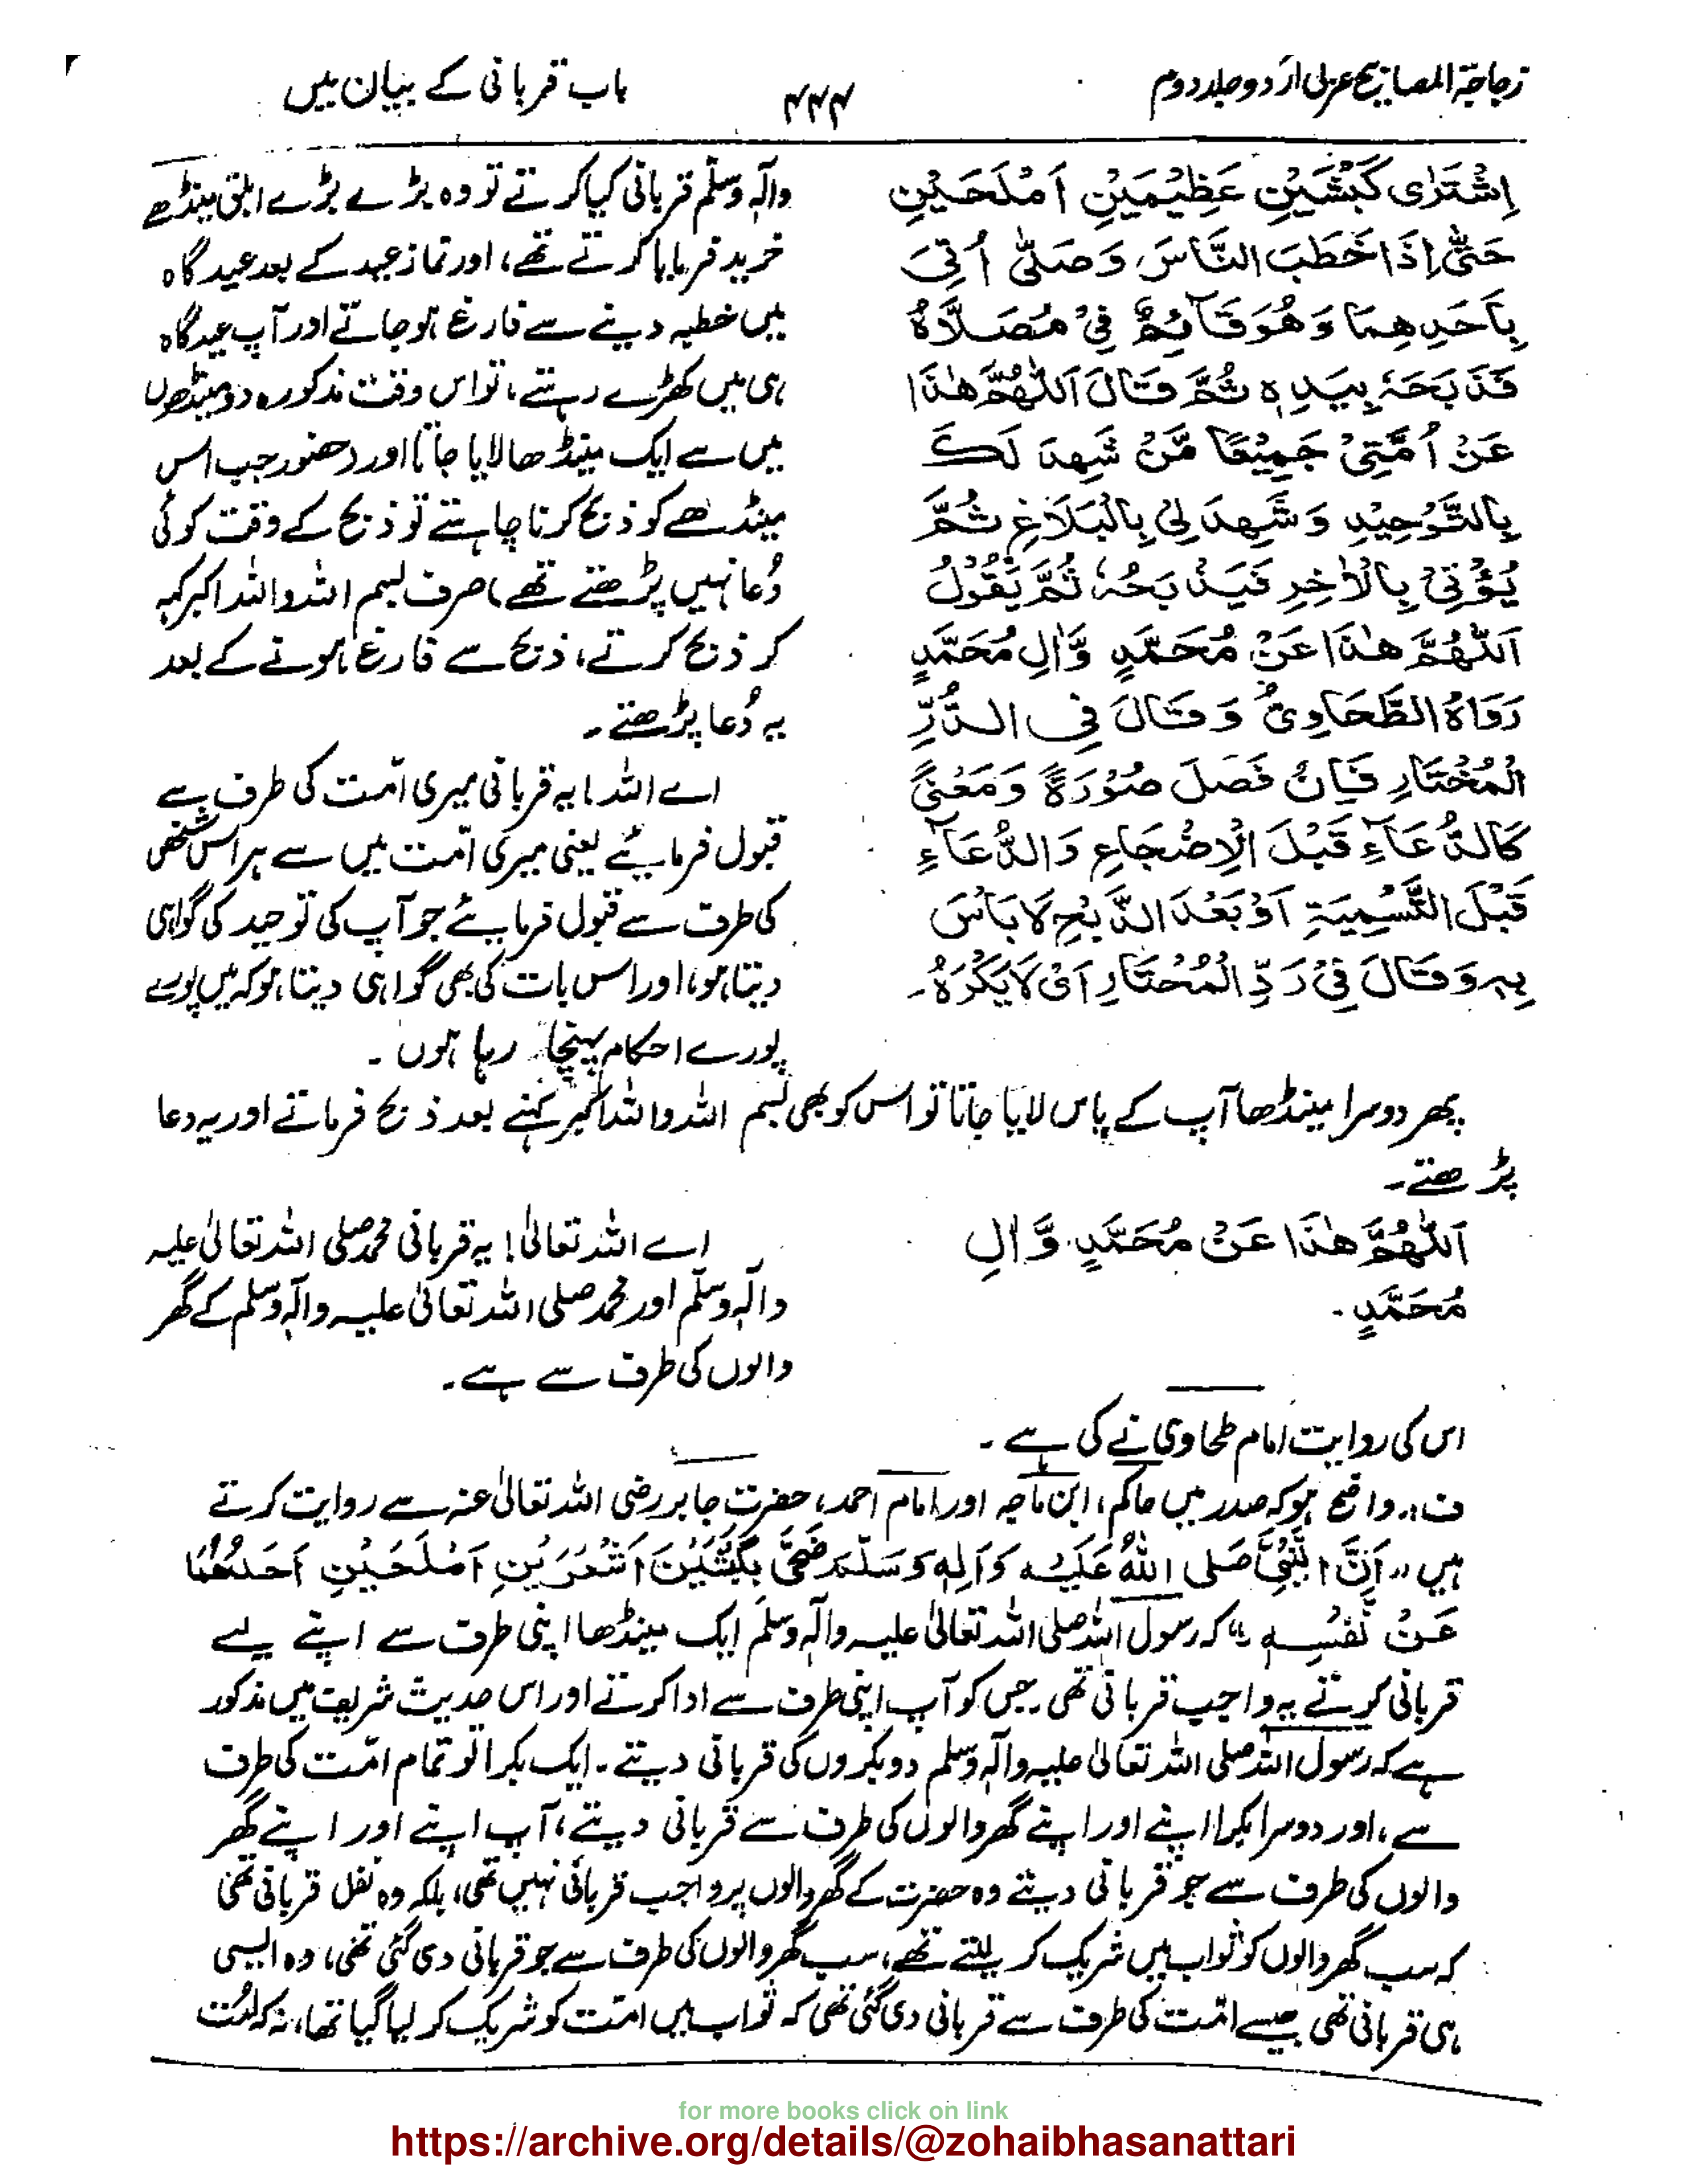 زجاجۃ المصابیح عربی اردو جلد دوم
۴۴۴
باب قربانی کے بیان میں
اِشْتَرٰی كَبْشَيْنِ عَظِيْمَيْنِ اَمْلَحَيْنِ
حَتّٰى اِذَا خَطَبَ النَّاسَ وَصَلّٰى اُتِيَ
بِاَحَدِهِمَا وَهُوَ قَآئِمٌ فِيْ مُصَلَّاهُ
فَذَبَحَهٗ بِيَدِهٖ ثُمَّ قَالَ اَللّٰهُمَّ هٰذَا
عَنْ اُمَّتِيْ جَمِيْعًا مَّنْ شَهِدَ لَكَ
بِالتَّوْحِيْدِ وَشَهِدَ لِيْ بِالْبَلَاغِ ثُمَّ
يُؤْتٰى بِالْاٰخِرِ فَيَذْبَحُهٗ ثُمَّ يَقُوْلُ
اَللّٰهُمَّ هٰذَا عَنْ مُحَمَّدٍ وَّاٰلِ مُحَمَّدٍ
رَوَاهُ الطَّحَاوِيُّ وَقَالَ فِي الدُّرِّ
الْمُخْتَارِ فَاِنْ فَصَلَ صُوْرَةً وَمَعْنًى
كَالدُّعَآءِ قَبْلَ الْاِضْجَاعِ وَالدُّعَآءِ
قَبْلَ التَّسْمِيَةِ اَوْ بَعْدَ الذَّبْحِ لَا بَاْسَ
بِهٖ وَقَالَ فِيْ رَدِّ الْمُحْتَارِ اَيْ لَا يَكْرَهُ۔
واٰلہٖ وسلّم قربانی کیا کرتے تو وہ بڑے بڑے ابلق مینڈھے
خرید فرمایا کرتے تھے، اور نماز عید کے بعد عید گاہ
میں خطبہ دینے سے فارغ ہو جاتے اور آپ عید گاہ
ہی میں کھڑے رہتے، تو اس وقت مذکورہ دو مینڈھوں
میں سے ایک مینڈھا لایا جاتا اور (حضور جب اس
مینڈھے کو ذبح کرنا چاہتے تو ذبح کے وقت کوئی
دُعا نہیں پڑھتے تھے) صرف بسم اللہ واللہ اکبر کہہ
کر ذبح کرتے، ذبح سے فارغ ہونے کے بعد
یہ دُعا پڑھتے۔
اے اللہ! یہ قربانی میری امّت کی طرف سے
قبول فرمایئے یعنی میری امّت میں سے ہر اس شخص
کی طرف سے قبول فرمایئے جو آپ کی توحید کی گواہی
دیتا ہو، اور اس بات کی بھی گواہی دیتا ہو کہ میں پورے
پورے احکام پہنچا رہا ہوں۔
پھر دوسرا مینڈھا آپ کے پاس لایا جاتا تو اس کو بھی بسم اللہ واللہ اکبر کہنے بعد ذبح فرماتے اور یہ دعا
پڑھتے۔
اَللّٰهُمَّ هٰذَا عَنْ مُحَمَّدٍ وَّاٰلِ
مُحَمَّدٍ۔
اے اللہ تعالیٰ! یہ قربانی محمد صلی اللہ تعالیٰ علیہ
واٰلہٖ وسلّم اور محمد صلی اللہ تعالیٰ علیہ واٰلہٖ وسلم کے گھر
والوں کی طرف سے ہے۔
اس کی روایت امام طحاوی نے کی ہے۔
ف:۔ واضح ہو کہ صدر میں حاکم، ابن ماجہ اور امام احمد، حضرت جابر رضی اللہ تعالیٰ عنہ سے روایت کرتے
ہیں "اَنَّ النَّبِيَّ صَلى اللهُ عَلَيْه وَآلِهٖ وَسَلَّمَ ضَحّٰى بِكَبْشَيْنَ اَشْعَرَيْنِ اَمْلَحَيْنِ اَحَدُهُمَا
عَنْ نَفْسِهٖ" کہ رسول اللہ صلی اللہ تعالیٰ علیہ واٰلہٖ وسلّم ایک مینڈھا اپنی طرف سے اپنے لیے
قربانی کرتے یہ واجب قربانی تھی۔ جس کو آپ اپنی طرف سے ادا کرتے اور اس حدیث شریف میں مذکور
ہے کہ رسول اللہ صلی اللہ تعالیٰ علیہ واٰلہٖ وسلم دو بکروں کی قربانی دیتے۔ ایک بکرا تو تمام امّت کی طرف
سے، اور دوسرا بکرا اپنے اور اپنے گھر والوں کی طرف سے قربانی دیتے، آپ اپنے اور اپنے گھر
والوں کی طرف سے جو قربانی دیتے وہ حضرت کے گھر والوں پر واجب قربانی نہیں تھی، بلکہ وہ نفل قربانی تھی
کہ سب گھر والوں کو ثواب میں شریک کر لیتے تھے، سب گھر والوں کی طرف سے جو قربانی دی گئی تھی، وہ ایسی
ہی قربانی تھی جیسے امّت کی طرف سے قربانی دی گئی تھی کہ ثواب میں امّت کو شریک کر لیا گیا تھا، نہ کہ امّت
for more books click on link
https://archive.org/details/@zohaibhasanattari